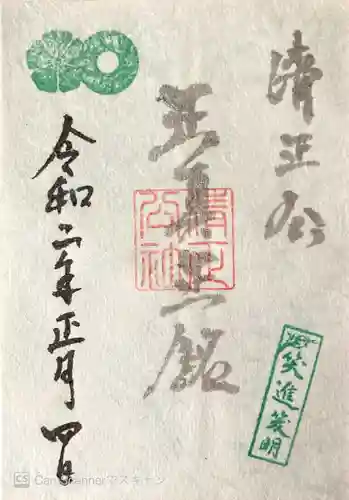 清正公
正真正銘
清正
公神社
令和二年正月四日
笑進笑明
CS CamScannerでスキャン